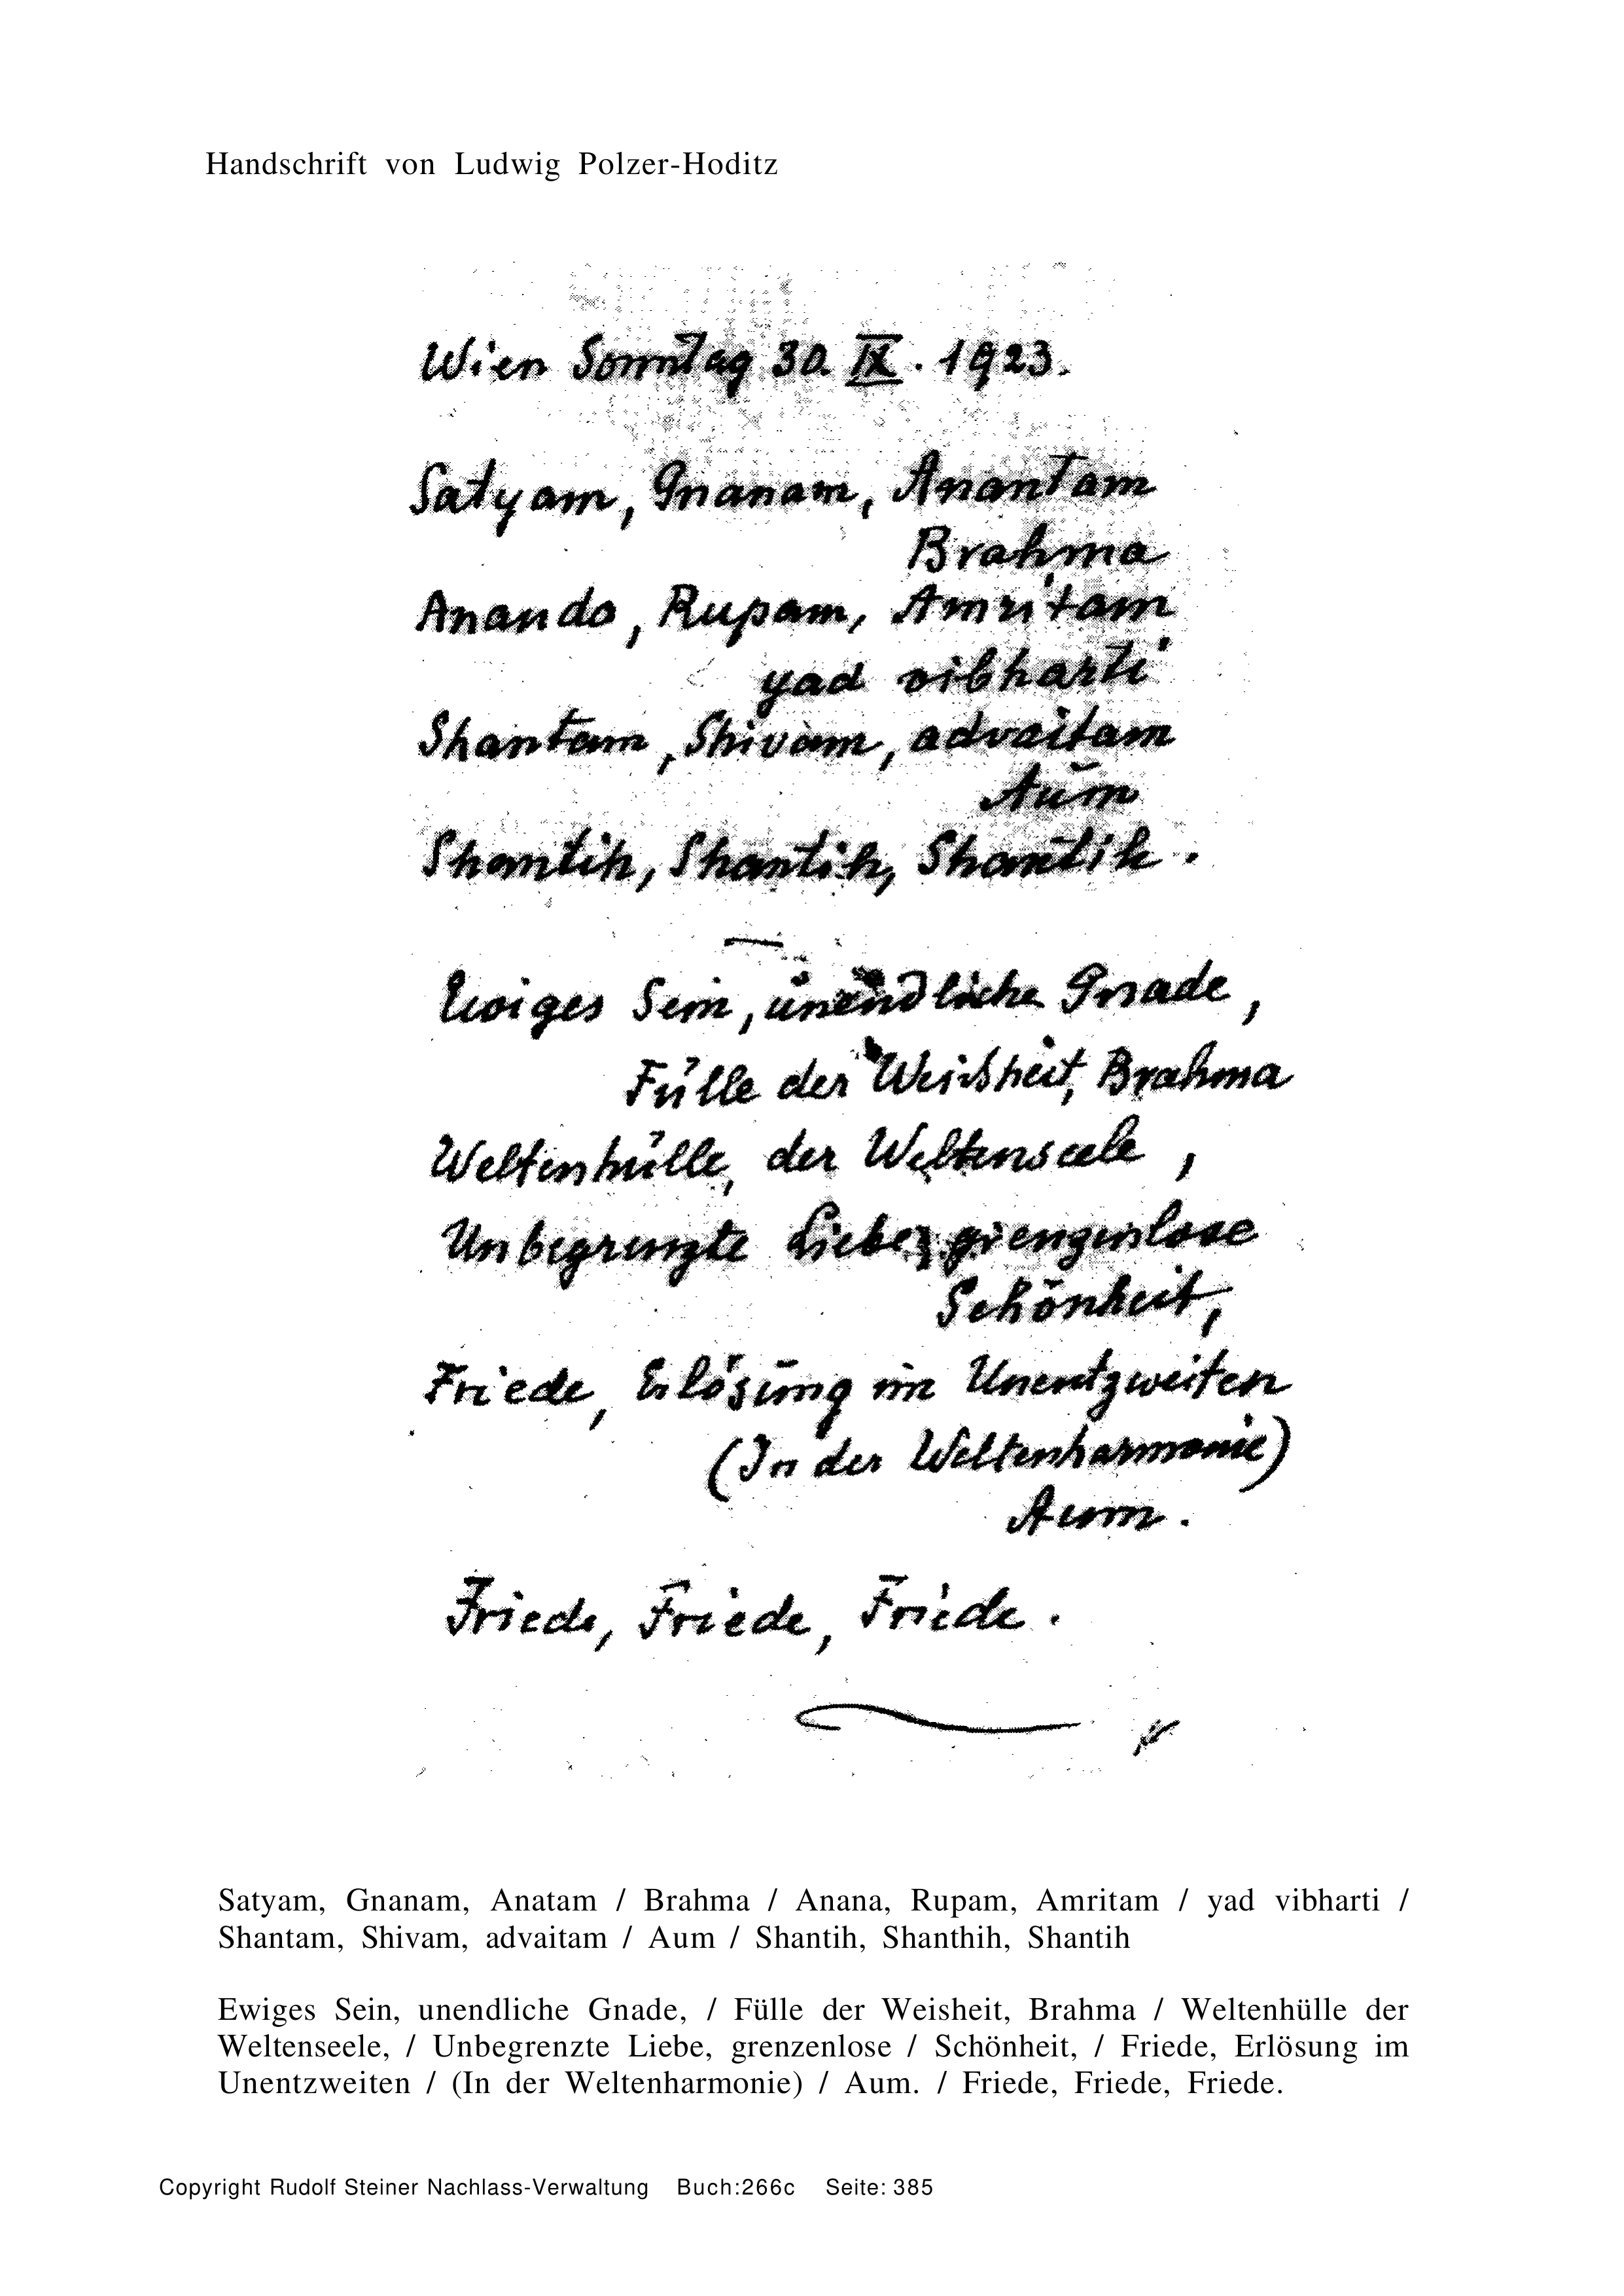 Handschrift von Ludwig Polzer-Hoditz
Wien Sonntag 30. IX. 1923.
Satyam, Gnanam, Anantam
Brahma
Anando, Rupam, Amritam
yad vibharti
Shantam, Shivam, advaitam
Aum
Shantih, Shantih, Shantih.
Ewiges Sein, unendliche Gnade,
Fülle der Weisheit, Brahma
Weltenhülle, der Weltenseele,
Unbegrenzte Liebe, grenzenlose
Schönheit,
Friede, Erlösung im Unentzweiten
(In der Weltenharmonie)
Aum.
Friede, Friede, Friede.
Satyam, Gnanam, Anatam / Brahma / Anana, Rupam, Amritam / yad vibharti /
Shantam, Shivam, advaitam / Aum / Shantih, Shanthih, Shantih
Ewiges Sein, unendliche Gnade, / Fülle der Weisheit, Brahma / Weltenhülle der
Weltenseele, / Unbegrenzte Liebe, grenzenlose / Schönheit, / Friede, Erlösung im
Unentzweiten / (In der Weltenharmonie) / Aum. / Friede, Friede, Friede.
Copyright Rudolf Steiner Nachlass-Verwaltung Buch:266c Seite: 385